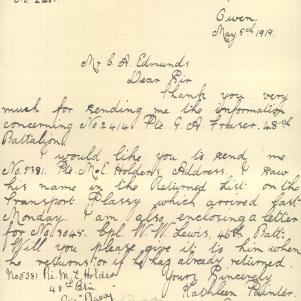 Owen.
May 5th 1919.
Mr C. A. Edmunds
Dear Sir
Thank you very
much for sending me the information
concerning No 2414 Pte. G. A. Fraser. 48th
Battalion.
I would like you to send me
No 5381. Pte. M. E. Holder's Address. I saw
his name in the Returned List. on the
Transport Plassy which arrived last
Monday. I am also enclosing a letter
for No. 3045. Cpl W. W. Lewis, 46th Batt.
Will you please give it to him when
he returns or if he has already returned.
Yours Sincerely
Kathleen Painter.
No 5381 Pte. M. E. Holder
48th Btn